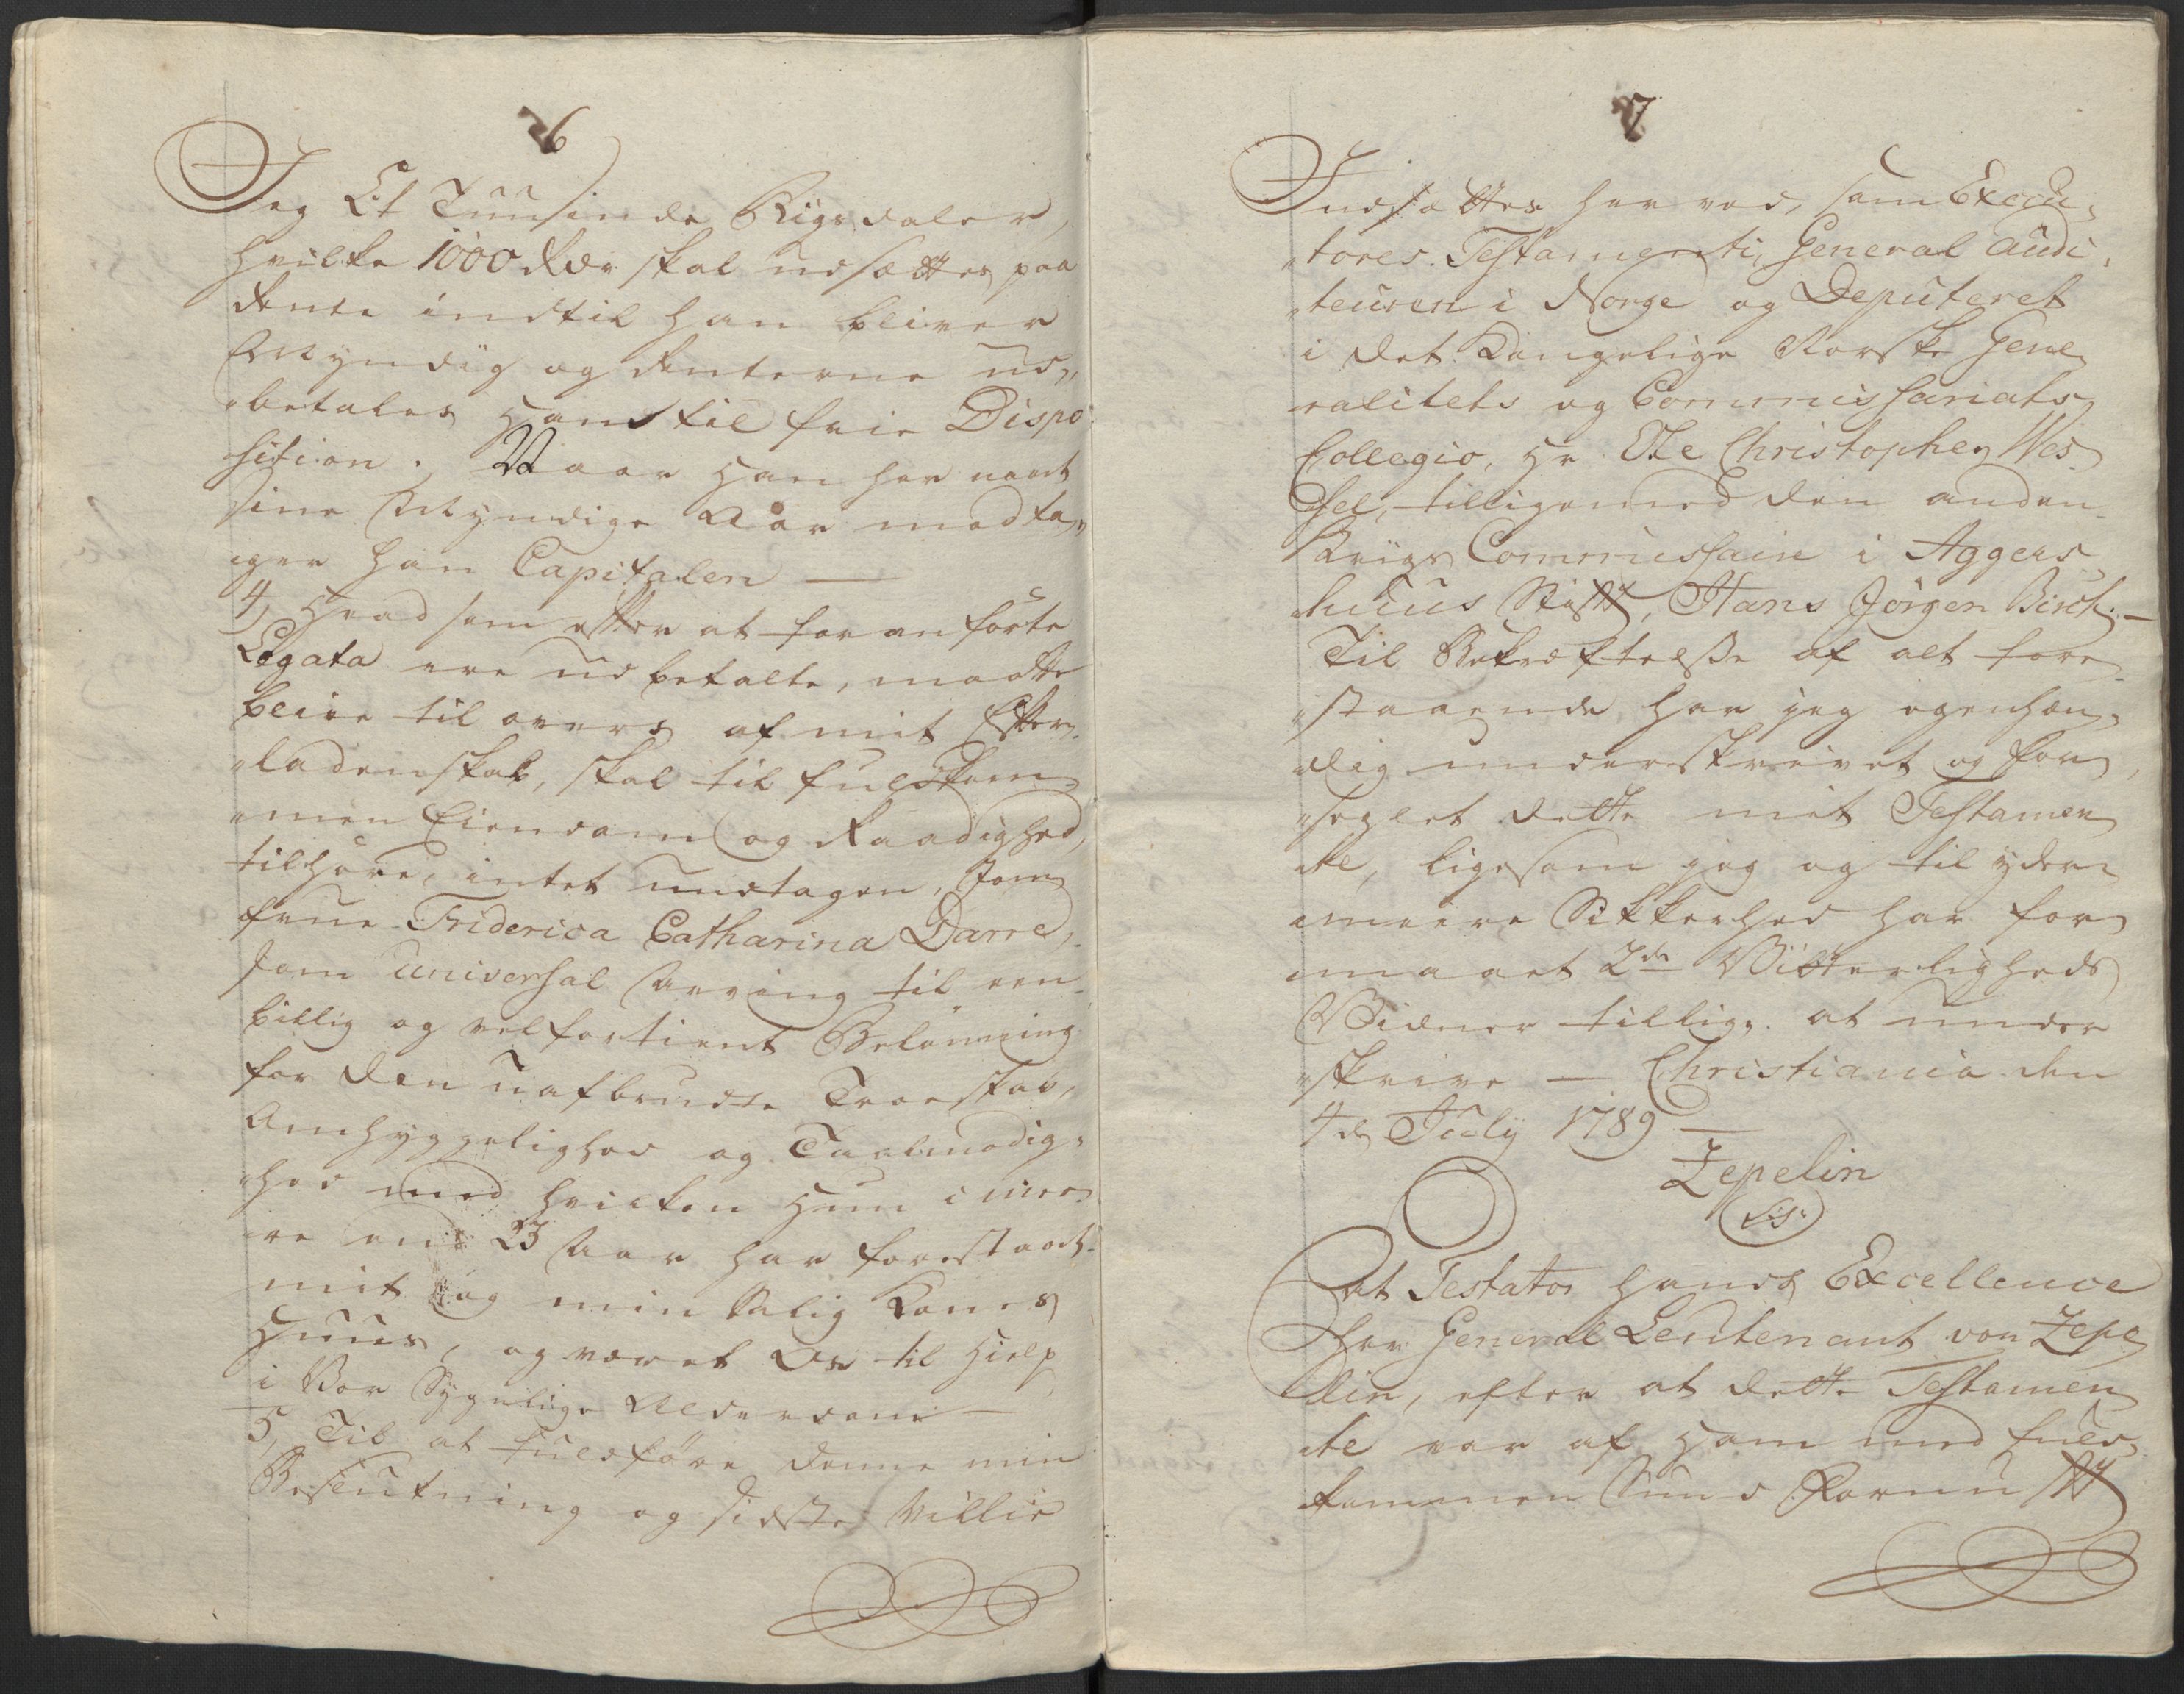 6
Jeg Et Tuusinde Rigsdaler,
hvilke 1000 Rdr skal udsættes paa
Rente indtil han bliver
Myndig og Renterne ud„
„betales ham til frie Dispo
sition. Naar han har naaet
sine Myndige Aar modta„
„ger han Capitalen —
4, Hvad som efter at foranførte
Legata ere udbetalte, maatte
blive til overs af mit Efter„
„ladenskab, skal til fuldkom„
„men Eiendom og Raadighed,
tilhøre, intet undtagen, Jom„
frue Friderica Catharina Darre,
som universal Arving til een
billig og velfortient Belønning
for den uafbrudte Troeskab,
Omhyggelighed og Taalmodig„
„hed med hvilken hun i mee„
„re end 23 Aar har forestaaet
mit og min Salig Kones
Huus, og været Os til Hielp
i Vor Sygelige Alderdom —
5, Til at fuldføre denne min
Beslutning og sidste Villie
7
Indsættes her ved, som Execu„
„tores Testamenti, General Audi„
„teuren i Norge og Deputeret
i det Kongelige Norske Gene„
ralitets og Commissariats
Collegio, Hr Ole Christopher Wes„
sel, tilligemed den anden
Krigs Commissair i Aggers„
huus Stift, Hans Jörgen Birch. —
Til Bekræftelse af alt fore„
„staaende har jeg egenhæn„
„dig underskrevet og for„
„seglet dette mit Testamen„
„te, ligesom jeg og til yder„
„meere Sikkerhed har for„
„maaet 2de Vitterligheds
Vidner tillige at under
„skrive — Christiania den
4de July 1789 —
Zepelin
L.S.
At Testator hands Excellence
Herr General Leutenant von Zepe„
lin, efter at dette Testamen„
„te var af ham med fuld„
„kommen Sund Fornuft